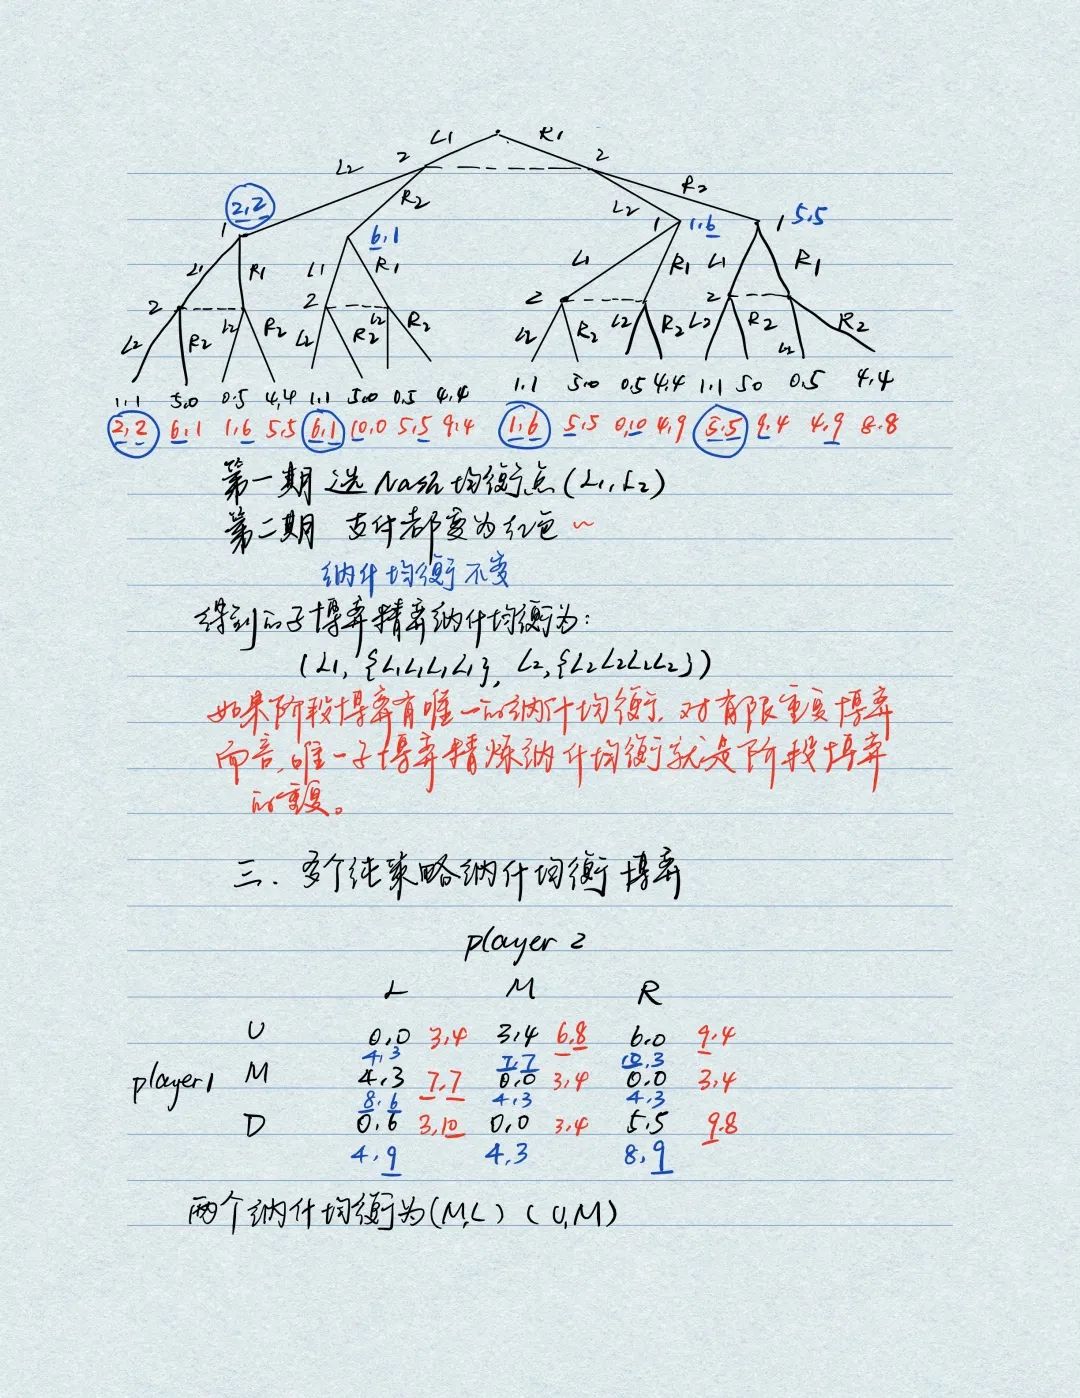 L1 R1
L2 2 2 R2
2,2 R2 L2
1 6,1 1 1,6 1 5,5
L1 R1 L1 R1 L1 R1 L1 R1
2 2 2 2
L2 R2 L2 R2 L2 R2 L2 R2 L2 R2 L2 R2 L2 R2 L2 R2
1,1 5,0 0,5 4,4 1,1 5,0 0,5 4,4 1,1 5,0 0,5 4,4 1,1 5,0 0,5 4,4
2,2 6,1 1,6 5,5 6,1 10,0 5,5 9,4 1,6 5,5 0,10 4,9 5,5 9,4 4,9 8,8
第一期 选 Nash均衡点(L1,L2)
第二期 支付都变为红色~
纳什均衡不变
得到的子博弈精弈纳什均衡为:
(L1, {L1L1L1L1}, L2,{L2L2L2L2})
如果阶段博弈有唯一的纳什均衡,对有限重复博弈
而言,唯一子博弈精炼纳什均衡就是阶段博弈
的重复。
三、多个纯策略纳什均衡博弈
player 2
L M R
U 0,0 3,4 3,4 6,8 6,0 9,4
4,3 7,7 10,3
player1 M 4,3 7,7 0,0 3,4 0,0 3,4
8,6 4,3 4,3
D 0,6 3,10 0,0 3,4 5,5 9,8
4,9 4,3 8,9
两个纳什均衡为(M,L) (U,M)